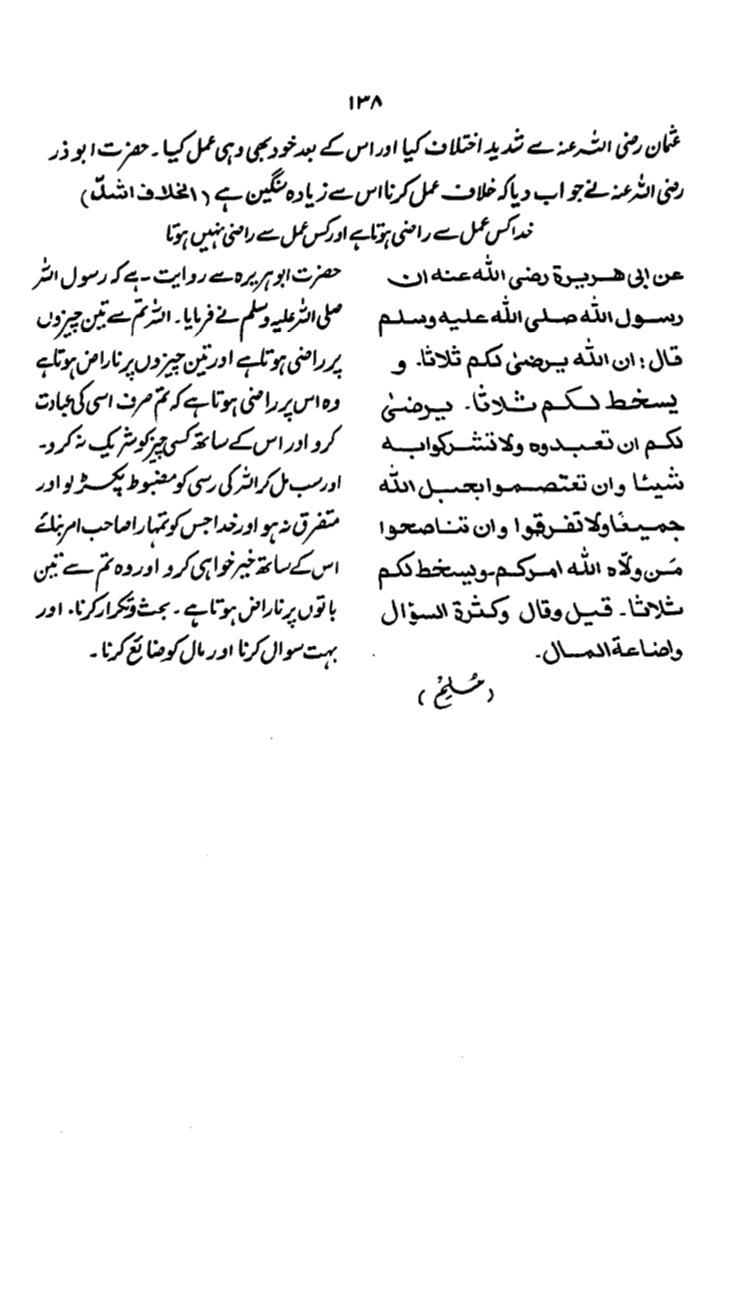 ۱۳۸
عثمان رضی اللہ عنہ سے شدید اختلاف کیا اور اس کے بعد خود بھی وہی عمل کیا۔ حضرت ابو ذر
رضی اللہ عنہ نے جواب دیا کہ خلاف عمل کرنا اس سے زیادہ سنگین ہے (الخلاف اشدّ)
خدا کس عمل سے راضی ہوتا ہے اور کس عمل سے راضی نہیں ہوتا
عن ابی هریرة رضی الله عنه ان
رسول الله صلی الله علیه وسلم
قال: ان الله یرضیٰ لکم ثلاثا۔ و
یسخط لکم ثلاثا۔ یرضیٰ
لکم ان تعبدوه ولا تشرکوا به
شیئا وان تعتصموا بحبل الله
جمیعًا ولا تفرقوا وان تناصحوا
مَن ولّاه الله امرکم۔ ویسخط لکم
ثلاثا۔ قیل وقال وکثرة السؤال
واضاعة المال۔
(مُسلِمْ)
حضرت ابو ہریرہ سے روایت ہے کہ رسول اللہ
صلی اللہ علیہ وسلم نے فرمایا۔ اللہ تم سے تین چیزوں
پر راضی ہوتا ہے اور تین چیزوں پر ناراض ہوتا ہے
وہ اس پر راضی ہوتا ہے کہ تم صرف اسی کی عبادت
کرو اور اس کے ساتھ کسی چیز کو شریک نہ کرو۔
اور سب مل کر اللہ کی رسی کو مضبوط پکڑ لو اور
متفرق نہ ہو اور خدا جس کو تمہارا صاحب امر بنائے
اس کے ساتھ خیر خواہی کرو اور وہ تم سے تین
باتوں پر ناراض ہوتا ہے۔ بحث و تکرار کرنا، اور
بہت سوال کرنا اور مال کو ضائع کرنا۔